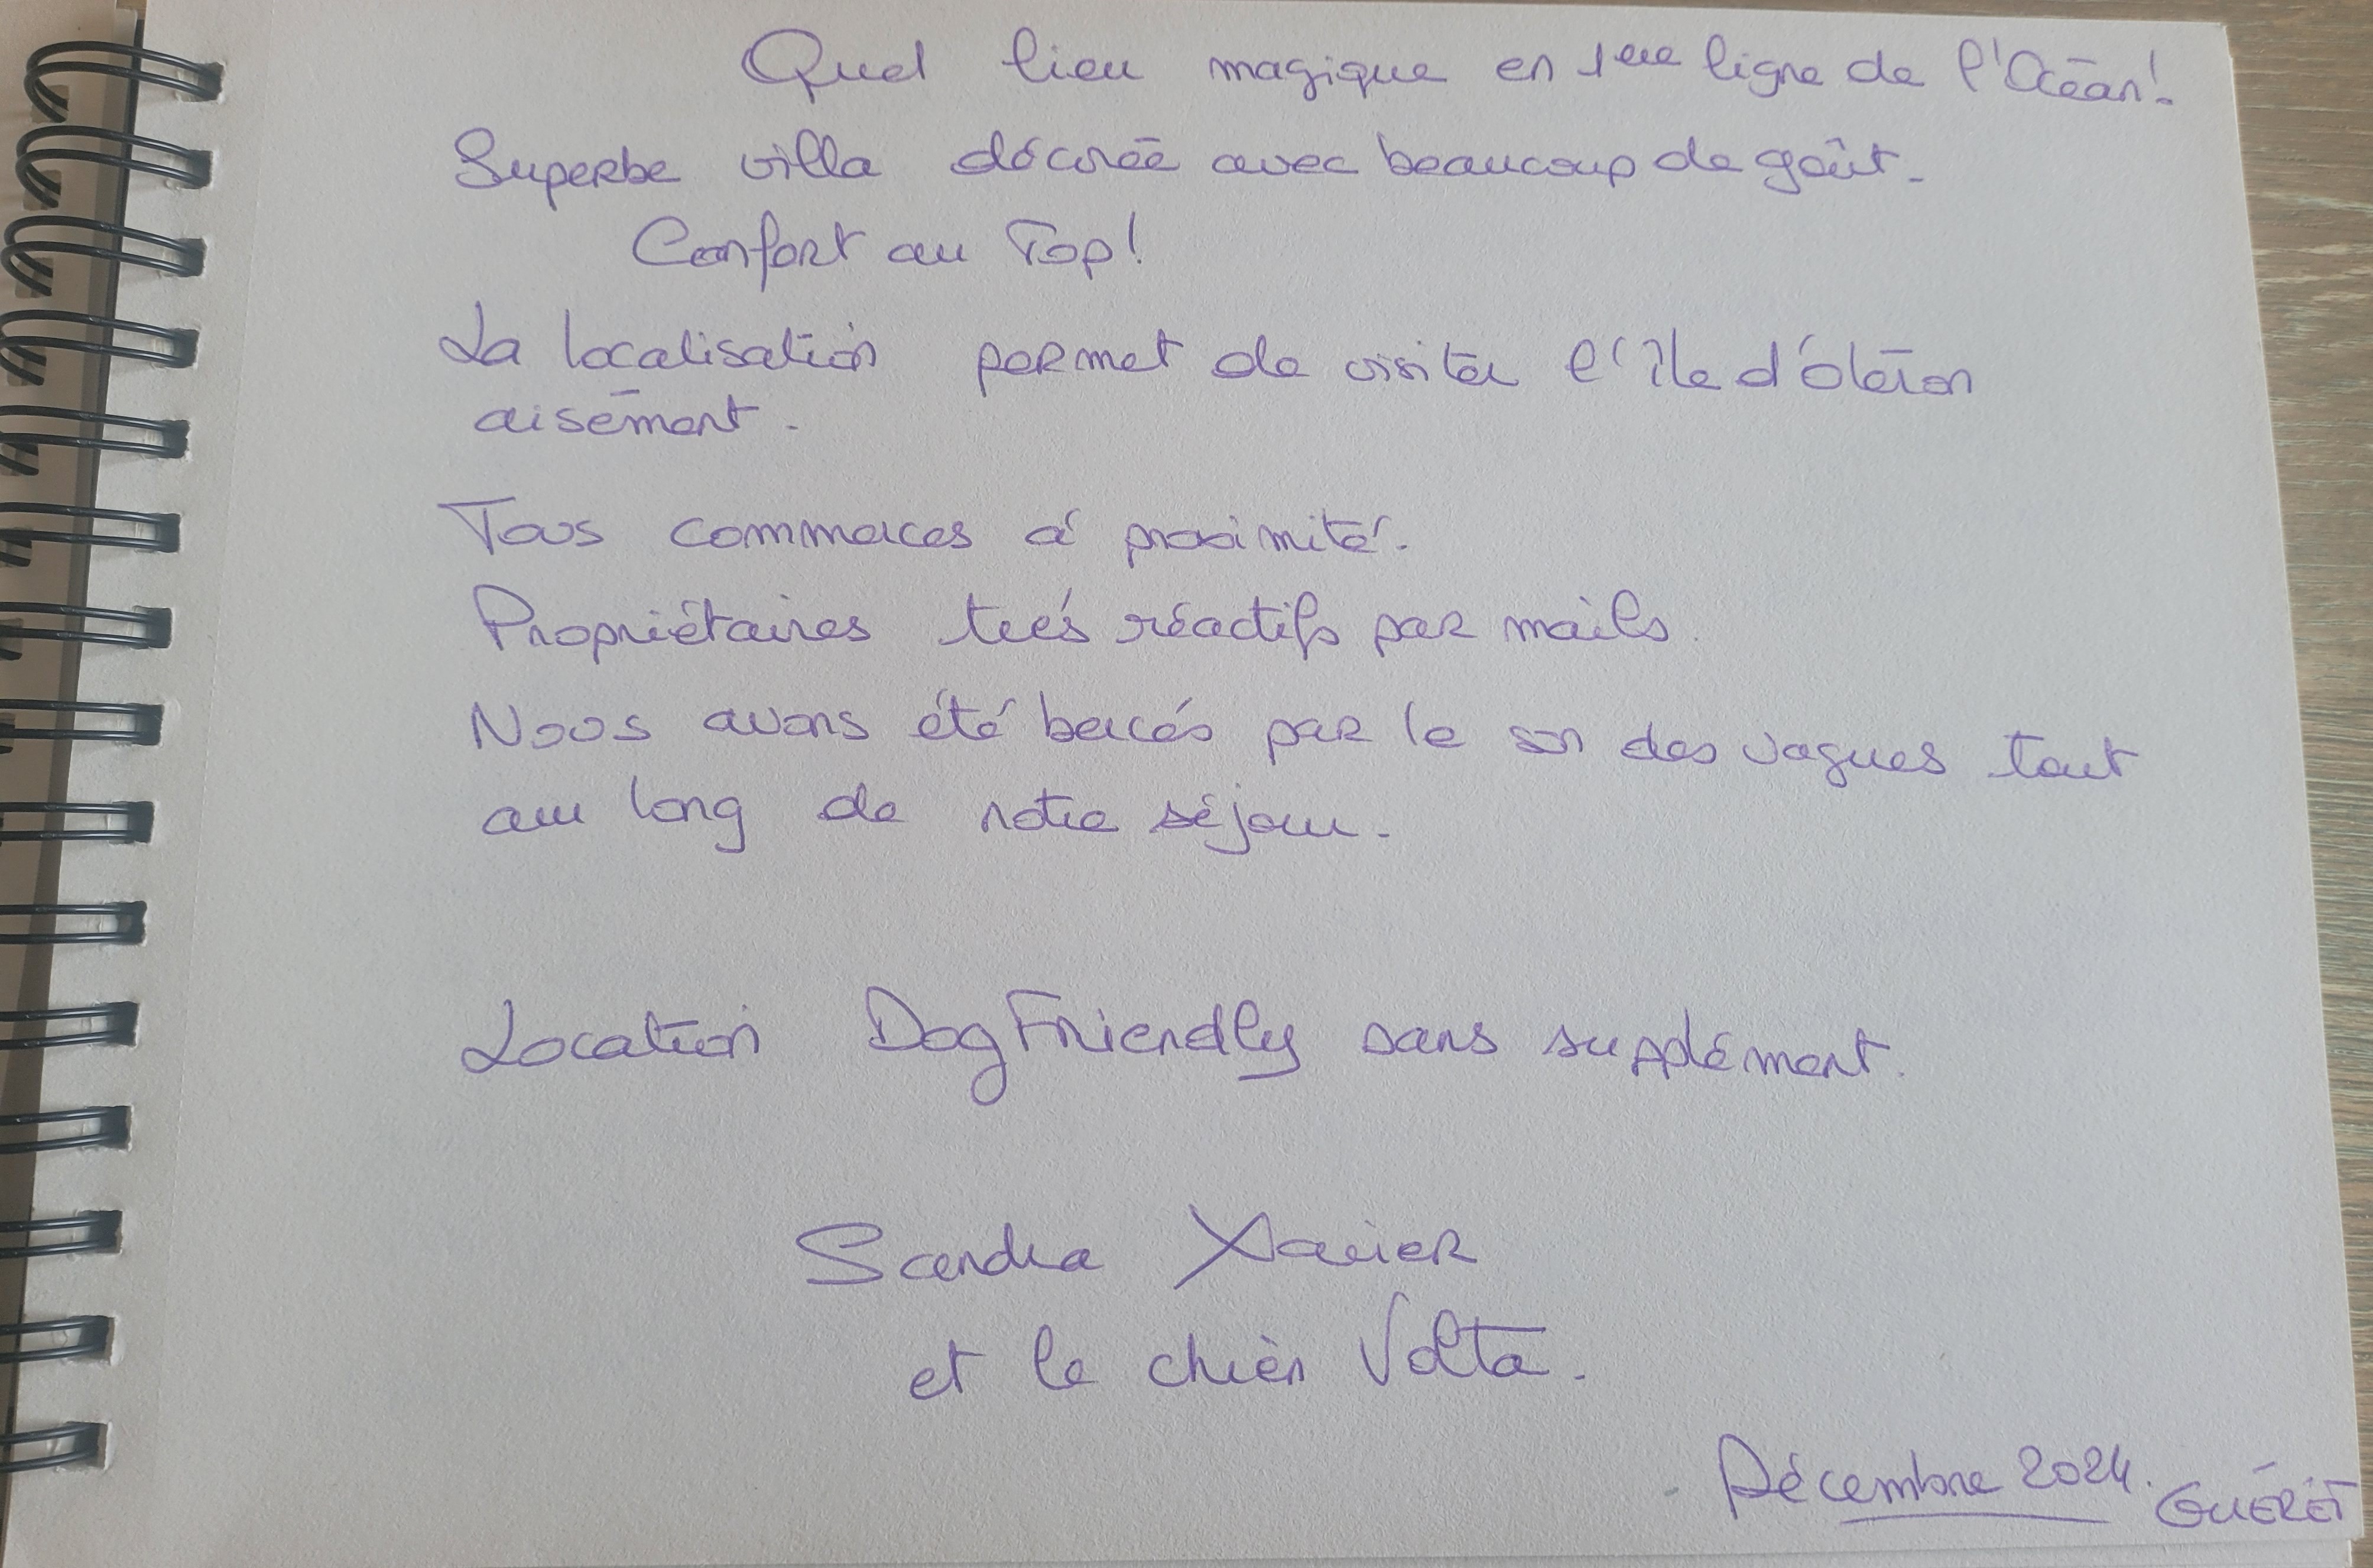 Quel lieu magique en 1ère ligne de l'Océan!
Superbe villa décorée avec beaucoup de goût.
Confort au Top!
La localisation permet de visiter l'île d'Oléron
aisément.
Tous commerces à proximité.
Propriétaires très réactifs par mails.
Nous avons été bercés par le son des vagues tout
au long de notre séjour.
Location DogFriendly sans supplément.
Sandra Xavier
et le chien Volta.
Décembre 2024.
GUÉRET